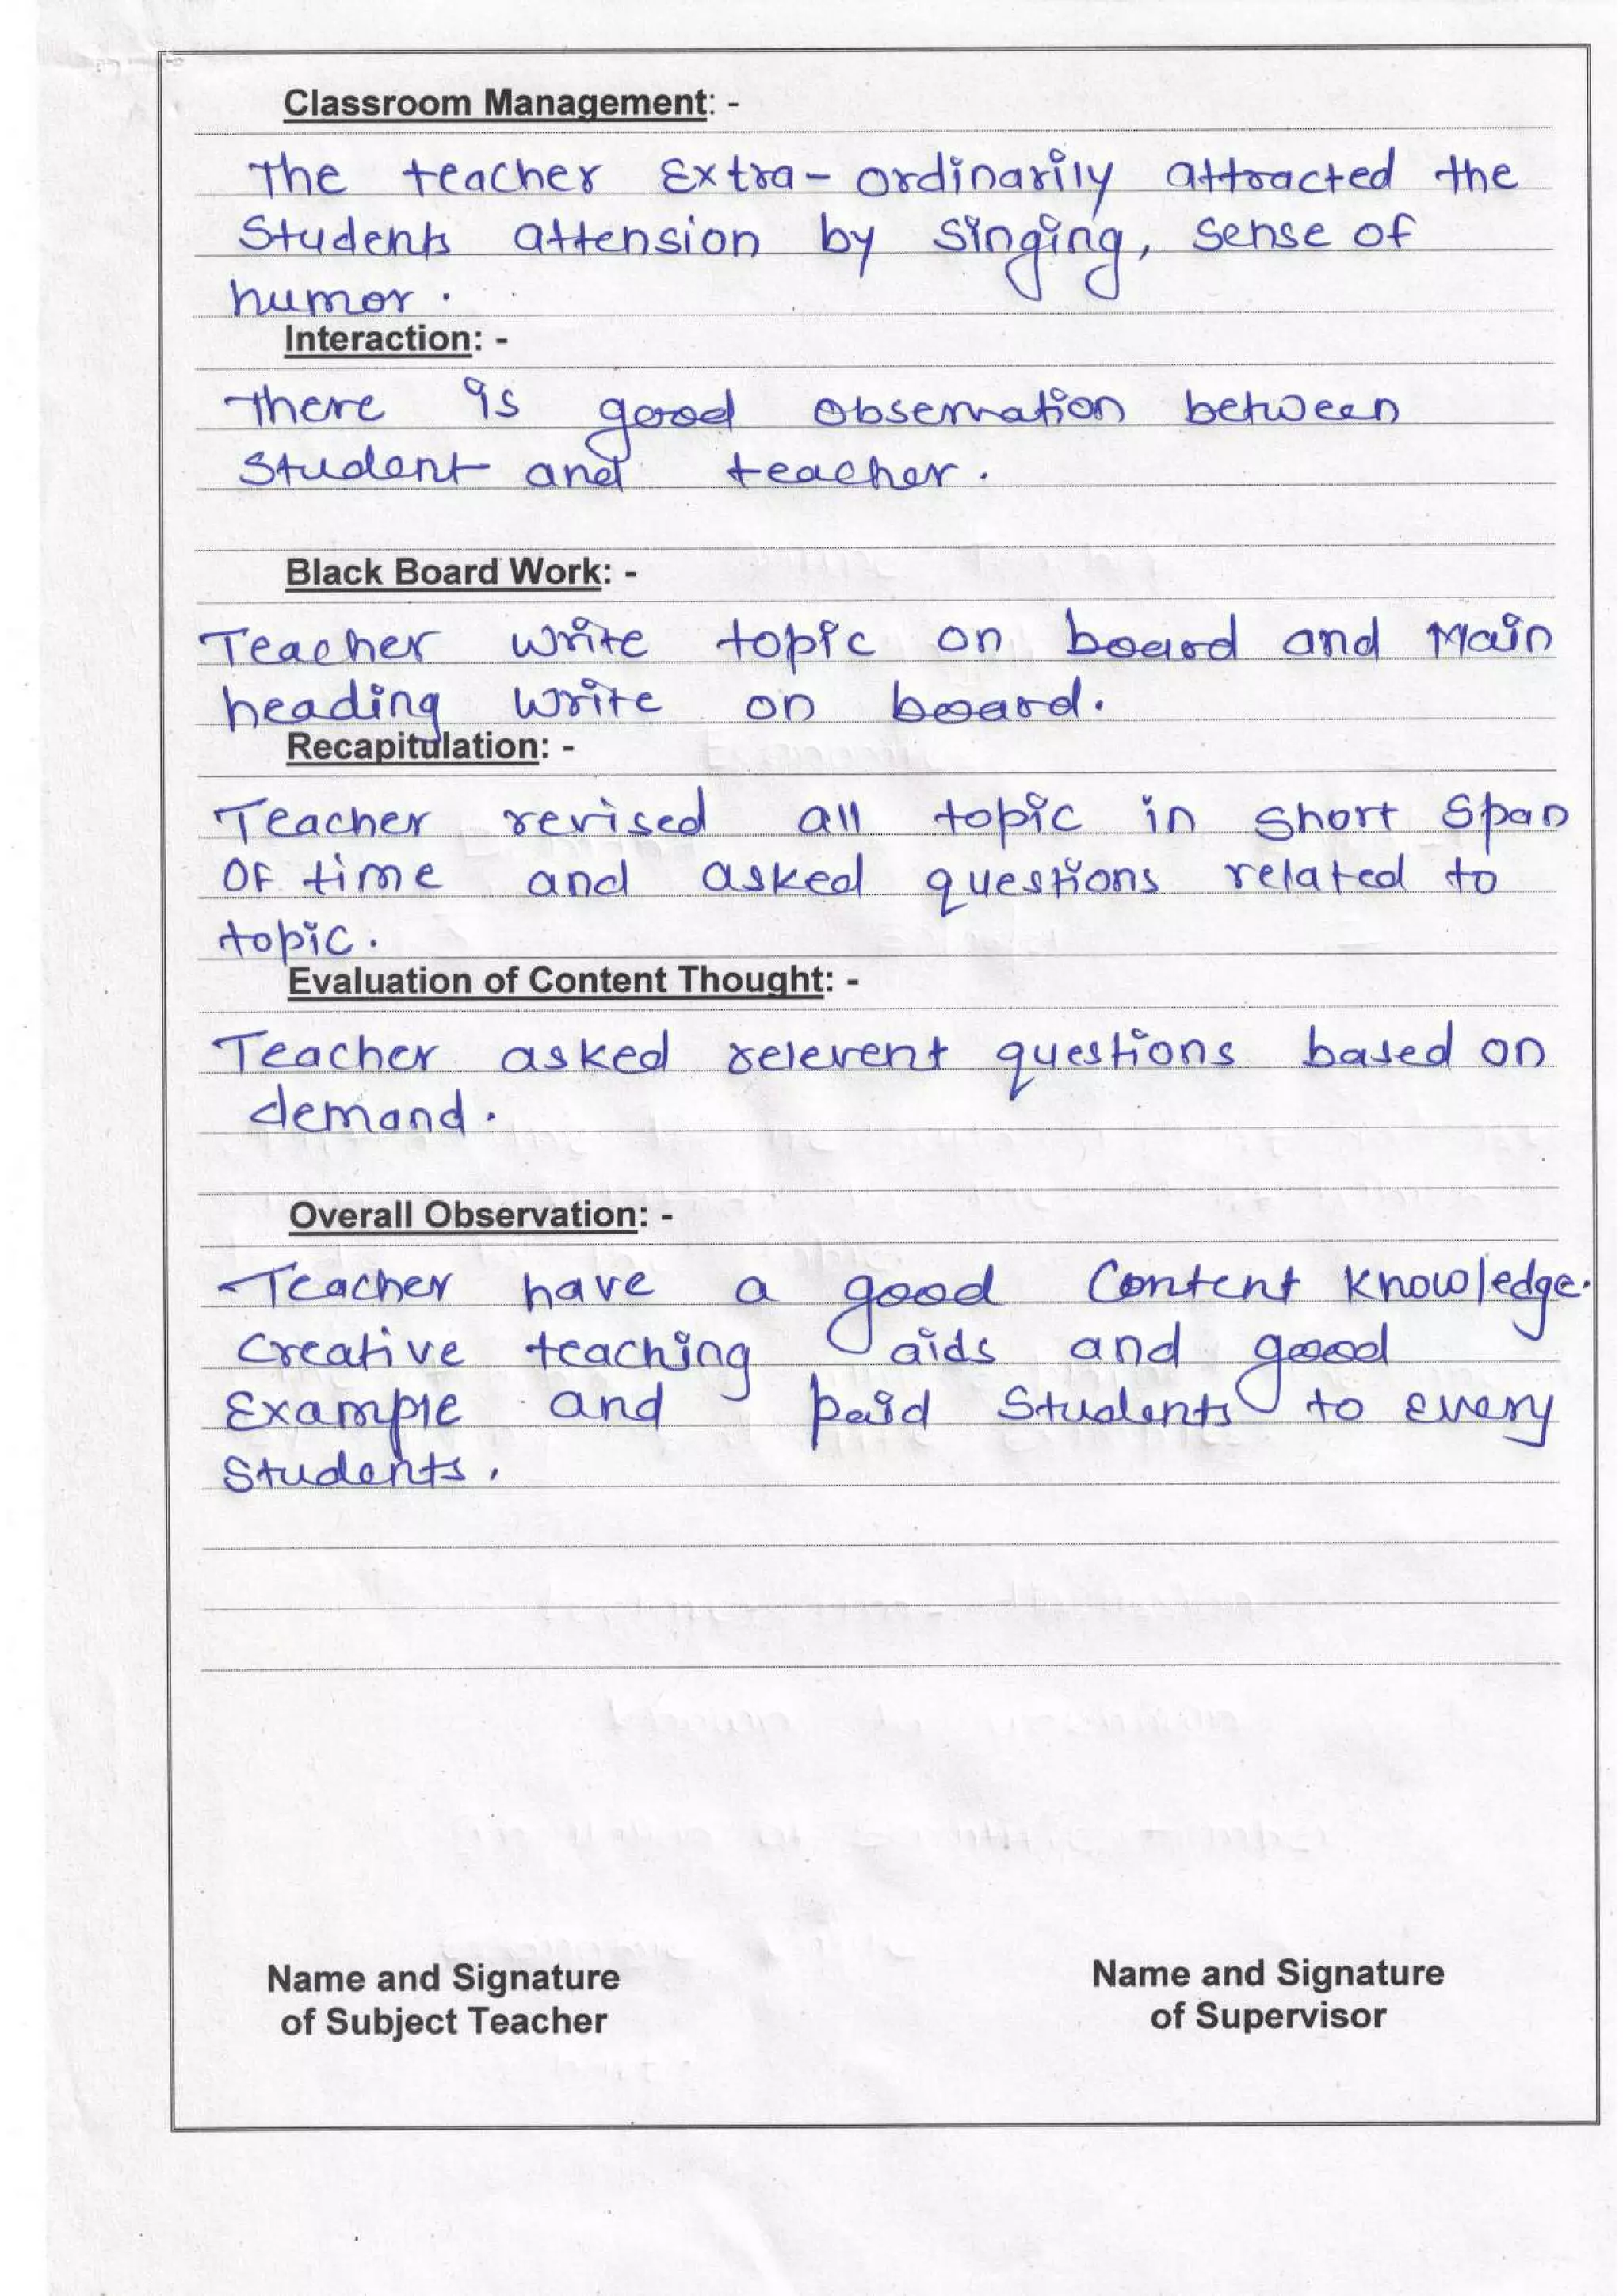 Classroom Management: -
The teacher Extra-ordinarily attracted the
Students attension by singing, sense of
humor.
Interaction: -
There is good observation between
Student and teacher.
Black Board Work: -
Teacher write topic on board and Main
heading write on board.
Recapitulation: -
Teacher revised all topic in short span
of time and asked questions related to
topic.
Evaluation of Content Thought: -
Teacher asked relevent questions based on
demand.
Overall Observation: -
Teacher have a good Content knowledge.
Creative teaching aids and good
Example and paid Students to every
Students.
Name and Signature
of Subject Teacher
Name and Signature
of Supervisor